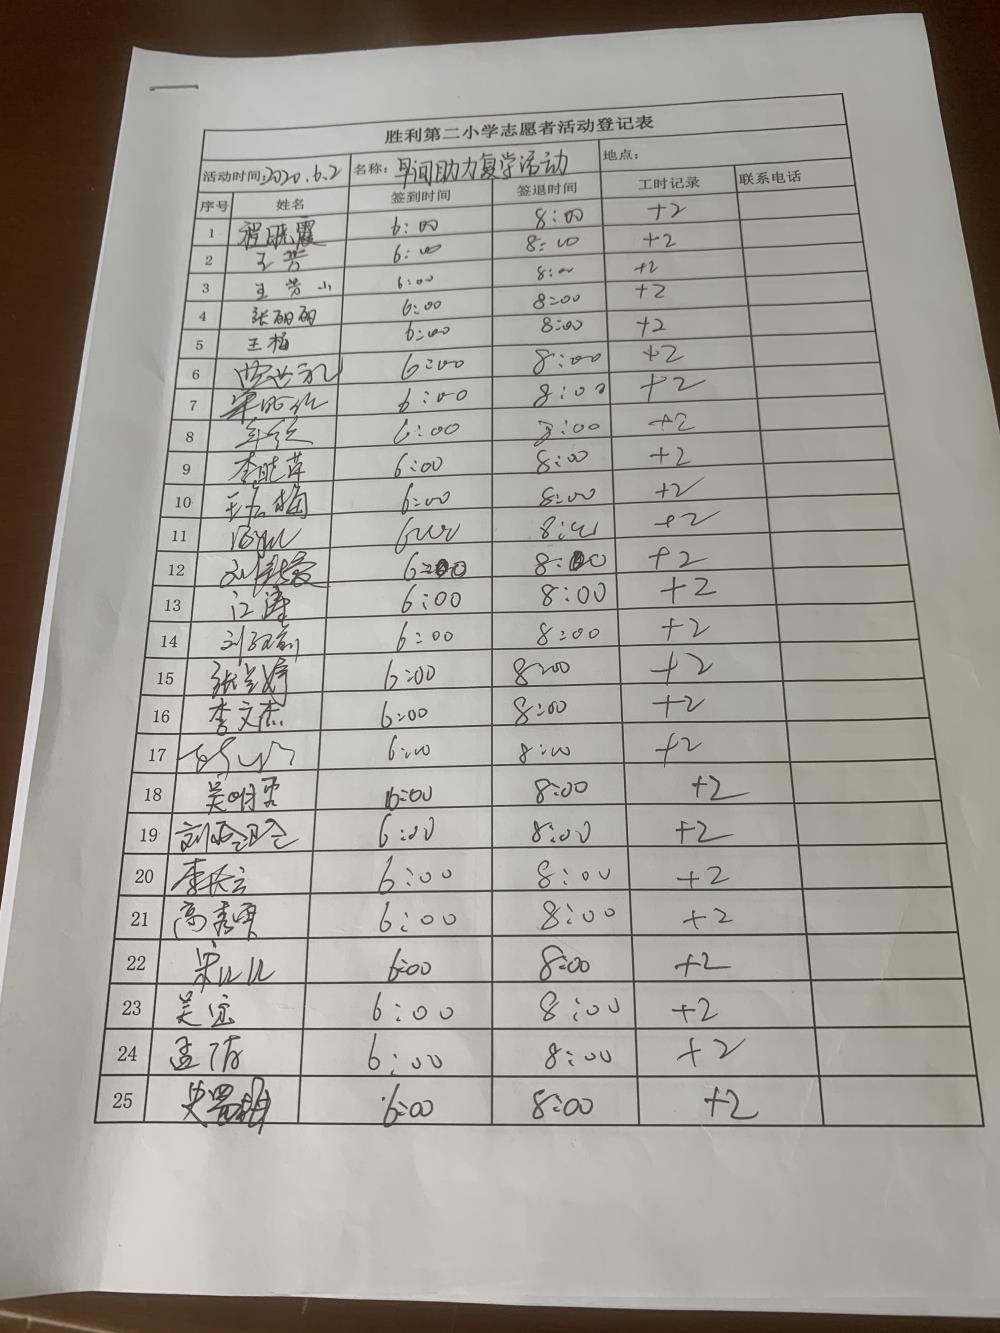 胜利第二小学志愿者活动登记表
活动时间:2020.6.2 名称: 早间助力复学活动 地点:
序号 姓名 签到时间 签退时间 工时记录 联系电话
1 程晓霞 6:00 8:00 +2
2 王芳 6:00 8:00 +2
3 王芳小 6:00 8:00 +2
4 张丽丽 6:00 8:00 +2
5 王梅 6:00 8:00 +2
6 6:00 8:00 +2
7 6:00 8:00 +2
8 6:00 8:00 +2
9 李晓萍 6:00 8:00 +2
10 6:00 8:00 +2
11 +2
12 +2
13 江涛 6:00 8:00 +2
14 6:00 8:00 +2
15 6:00 8:00 +2
16 李文杰 6:00 8:00 +2
17 6:00 8:00 +2
18 6:00 8:00 +2
19 6:00 8:00 +2
20 6:00 8:00 +2
21 6:00 8:00 +2
22 6:00 8:00 +2
23 6:00 8:00 +2
24 孟倩 6:00 8:00 +2
25 6:00 8:00 +2